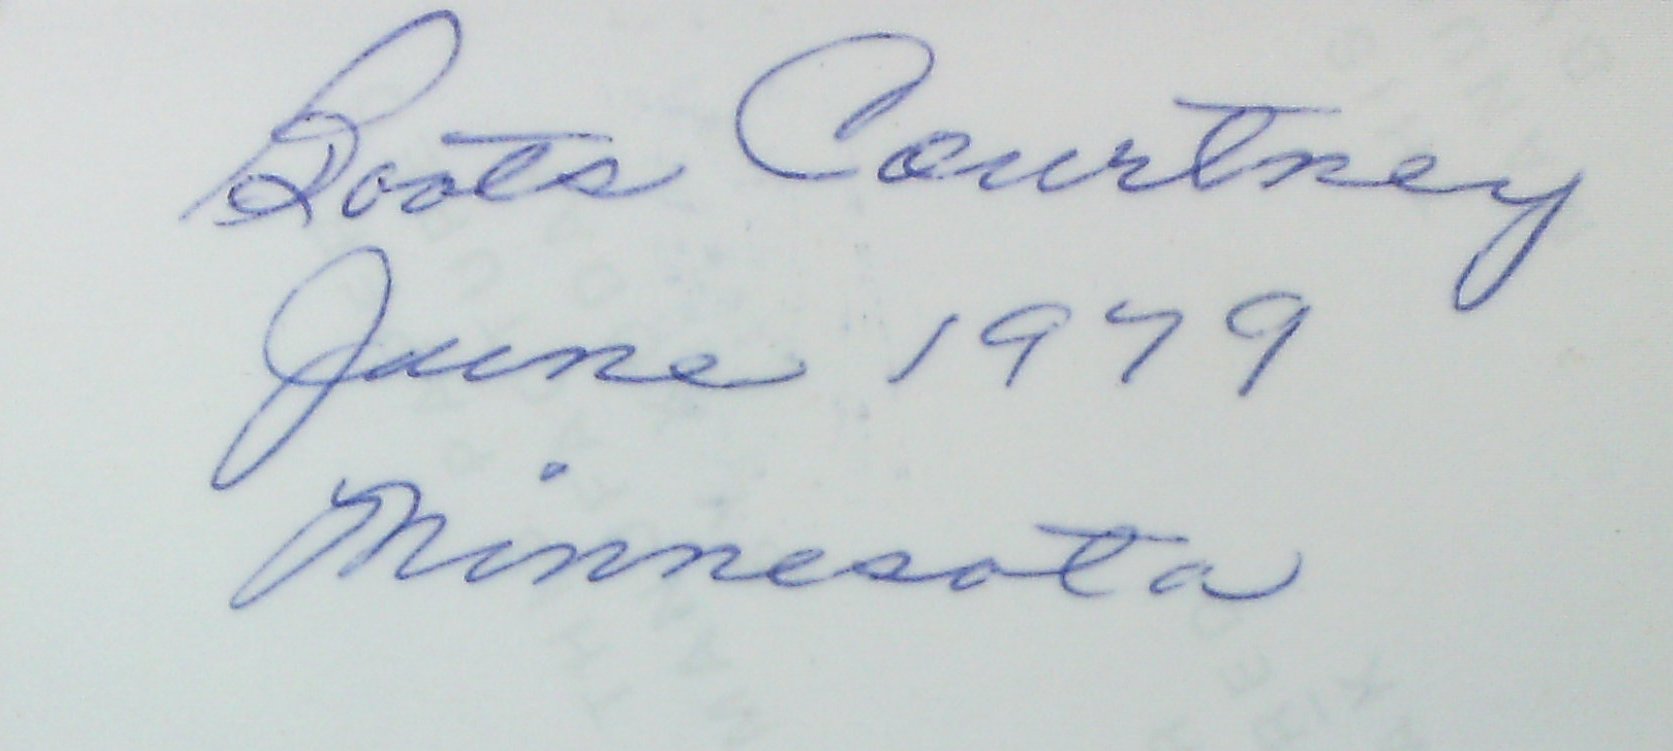 Boots Courtney
June 1979
Minnesota